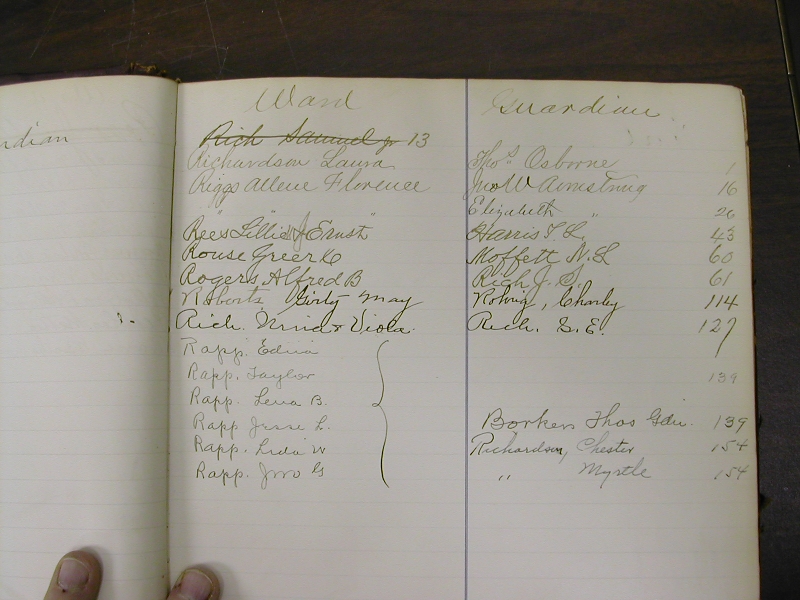 Ward Guardian
rdian
Rich Samuel Jr 13
Richardson Laura Thos Osborne 1
Riggs Allene Florence Jno W Armstrong 16
Elizabeth " 26
Rees Lillie J Ernst Harris T. L. 43
Rouse Greer C Moffett N. L 60
Rogers Alfred B Rich J. S. 61
Roberts Girty May Rohrig, Charly 114
Rich. & Viola. Rich. S. E. 127
Rapp. Edna
Rapp. Taylor 139
Rapp. Lena B.
Rapp Jesse L. Thos Gdn. 139
Rapp. Lida W Richardson, Chester 154
Rapp. Jno G " Myrtle 154